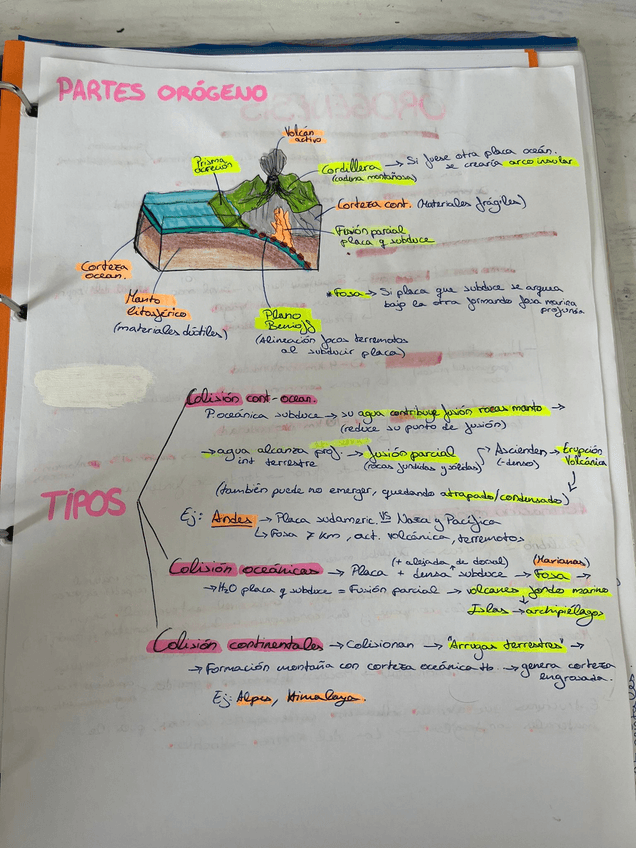 PARTES ORÓGENO
Volcán
activo
Prisma
acreción
Cordillera → Si fuese otra placa oceán.
(cadena montañosa) se crearía arco insular
Corteza cont. (Materiales frágiles)
Fusión parcial
placa q subduce
Corteza
ocean.
Manto
litosférico
(materiales dúctiles)
* Fosa → Si placa que subduce se arquea
bajo la otra formando fosa marina
profunda
Plano
Benioff
(Alineación focos terremotos
al subducir placa)
TIPOS
Colisión cont-ocean.
P. oceánica subduce → su agua contribuye fusión rocas manto →
(reduce su punto de fusión)
→ agua alcanza prof. → fusión parcial → Ascienden → Erupción
int terrestre (rocas fundidas y sólidas) (-densos) Volcánica
(también puede no emerger, quedando atrapado/condensado)
Ej: Andes → Placa sudameric. VS Nazca y Pacífica
↳ Fosa 7 km, act. volcánica, terremotos
(+ alejada de dorsal) (Marianas)
Colisión oceánicas → Placa + densa subduce → Fosa →
→ H2O placa q subduce = Fusión parcial → volcanes fondo marino
Islas → archipiélagos
Colisión continentales → Colisionan → "Arrugas terrestres" →
→ Formación montaña con corteza oceánica tb. → genera corteza
engrosada.
Ej: Alpes, Himalaya.